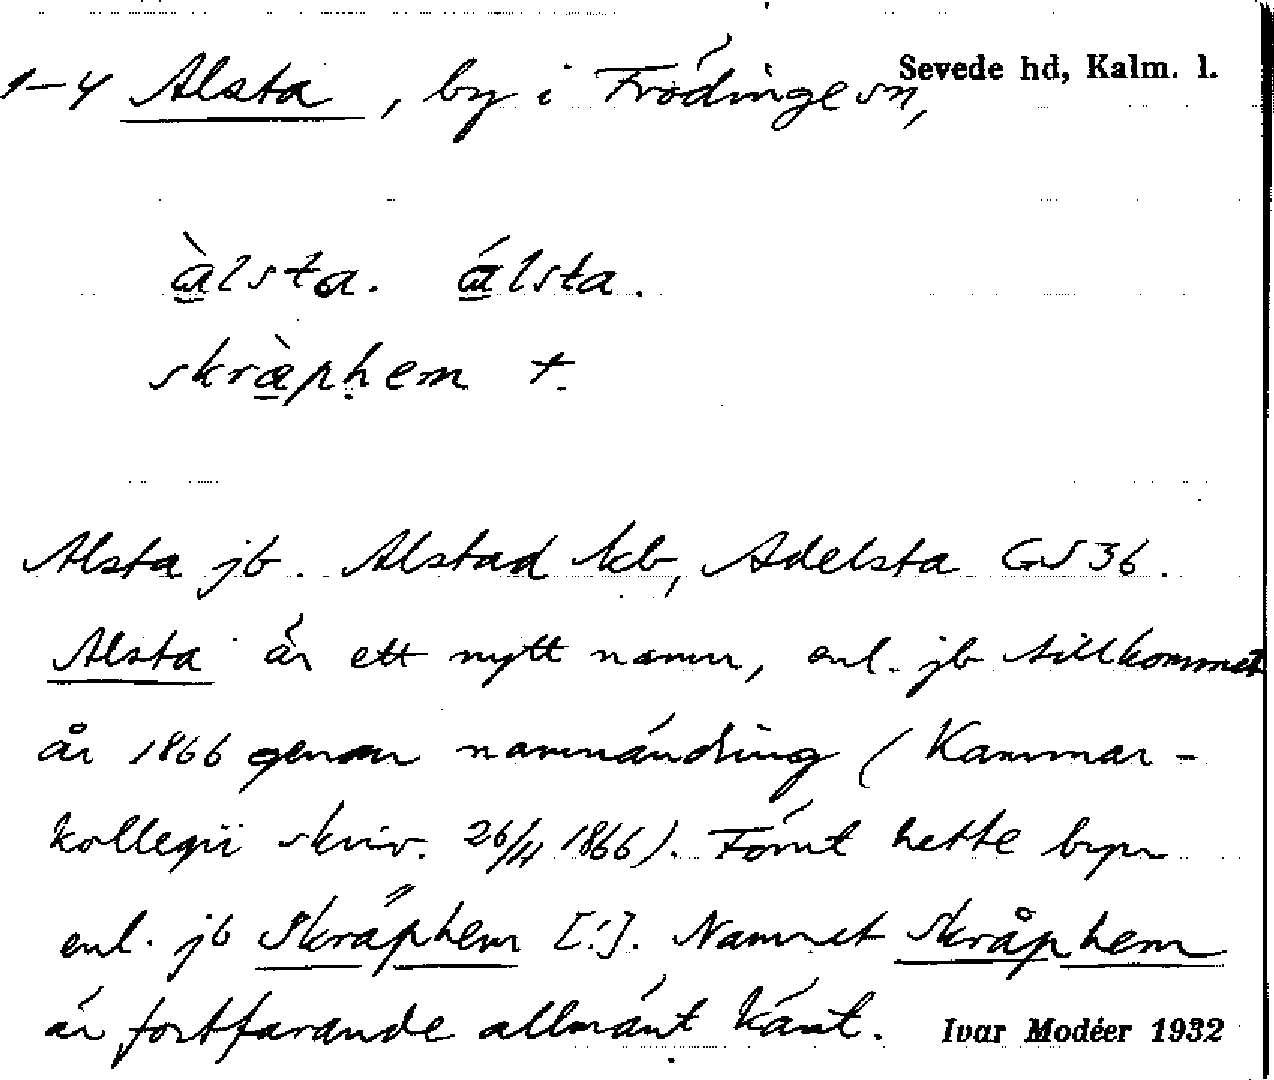 Sevede hd, Kalm. l.
1–4 Alsta, by i Frödinge sn,
àlsta. álsta.
skræ̀phem †.
Alsta jb. Alstad kb, Adelsta GS 36.
Alsta är ett nytt namn, enl. jb tillkommet
år 1866 genom namnändring (Kammar-
kollegii skriv. 26/4 1866). Förut hette byn
enl. jb Skräphem [!]. Namnet Skråphem
är fortfarande allmänt känt.
Ivar Modéer 1932